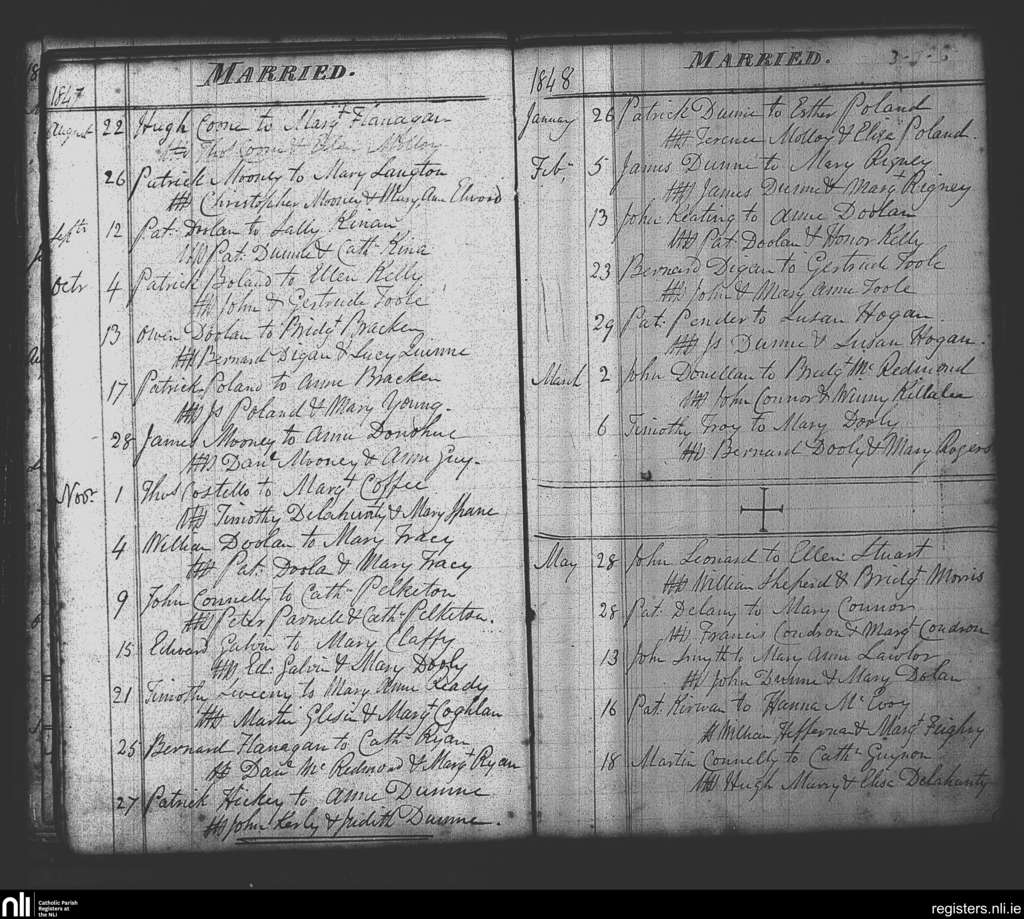 MARRIED.
1847
August 22 Hugh Coone to Margt Flanagan
Thos Coone & Ellen Molloy
26 Patrick Mooney to Mary Langton
Christopher Mooney & Mary Ann Elword
Septr 12 Pat. Doolan to Sally Kinan
Pat. Dunne & Cath. Kina
Octr 4 Patrick Boland to Ellen Kelly
John & Gertrude Toole
13 Owen Doolan to Bridgt Bracken
Bernard Digan & Lucy Quinne
17 Patrick Poland to Anne Bracken
Js Poland & Mary Young.
28 James Mooney to Anne Donohue
Danl Mooney & Ann Guy.
Novr 1 Thos Costello to Margt Coffee
Timothy Delahunty & Mary Spane
4 William Doolan to Mary Tracy
Pat. Doola & Mary Tracy
9 John Connelly to Cath. Pelketon
Peter Parnell & Cath. Pelketon.
15 Edward Galvin to Mary Claffy
Ed. Galvin & Mary Dooly
21 Timothy Sweeny to Mary Anne Ready
Martin & Margt Coghlan
25 Bernard Flanagan to Cath. Ryan
Danl Mc Redmond & Margt Ryan
27 Patrick Hickey to Anne Dunne
John Kerly & Judith Dunne.
MARRIED.
1848
January 26 Patrick Dunne to Esther Poland
Terence Molloy & Elisa Poland.
Feb. 5 James Dunne to Mary Rigney
James Dunne & Margt Rigney
13 John Keating to Anne Doolan
Pat Doolan & Honor Kelly
23 Bernard Digan to Gertrude Toole
John & Mary Anne Toole
29 Pat. Pender to Susan Hogan.
Js Dunne & Susan Hogan.
March 2 John Donellan to Bridgt Mc Redmond
John Connor & Winny Killalea
6 Timothy Troy to Mary Dooly
Bernard Dooly & Mary Rogers
May 28 John Leonard to Ellen Stuart
William Sheperd & Bridgt Morris
28 Pat. Delany to Mary Connor
Francis Condron & Margt Condron
13 John Smyth to Mary Anne Lawlor
John Dunne & Mary Dolan
16 Pat. Kirwan to Hanna Mc Evoy
William Heffernan & Margt Feighry
18 Martin Connelly to Cath. Guynon
Hugh Murry & Elisa Delahanty
nli Catholic Parish
Registers at
the NLI
registers.nli.ie